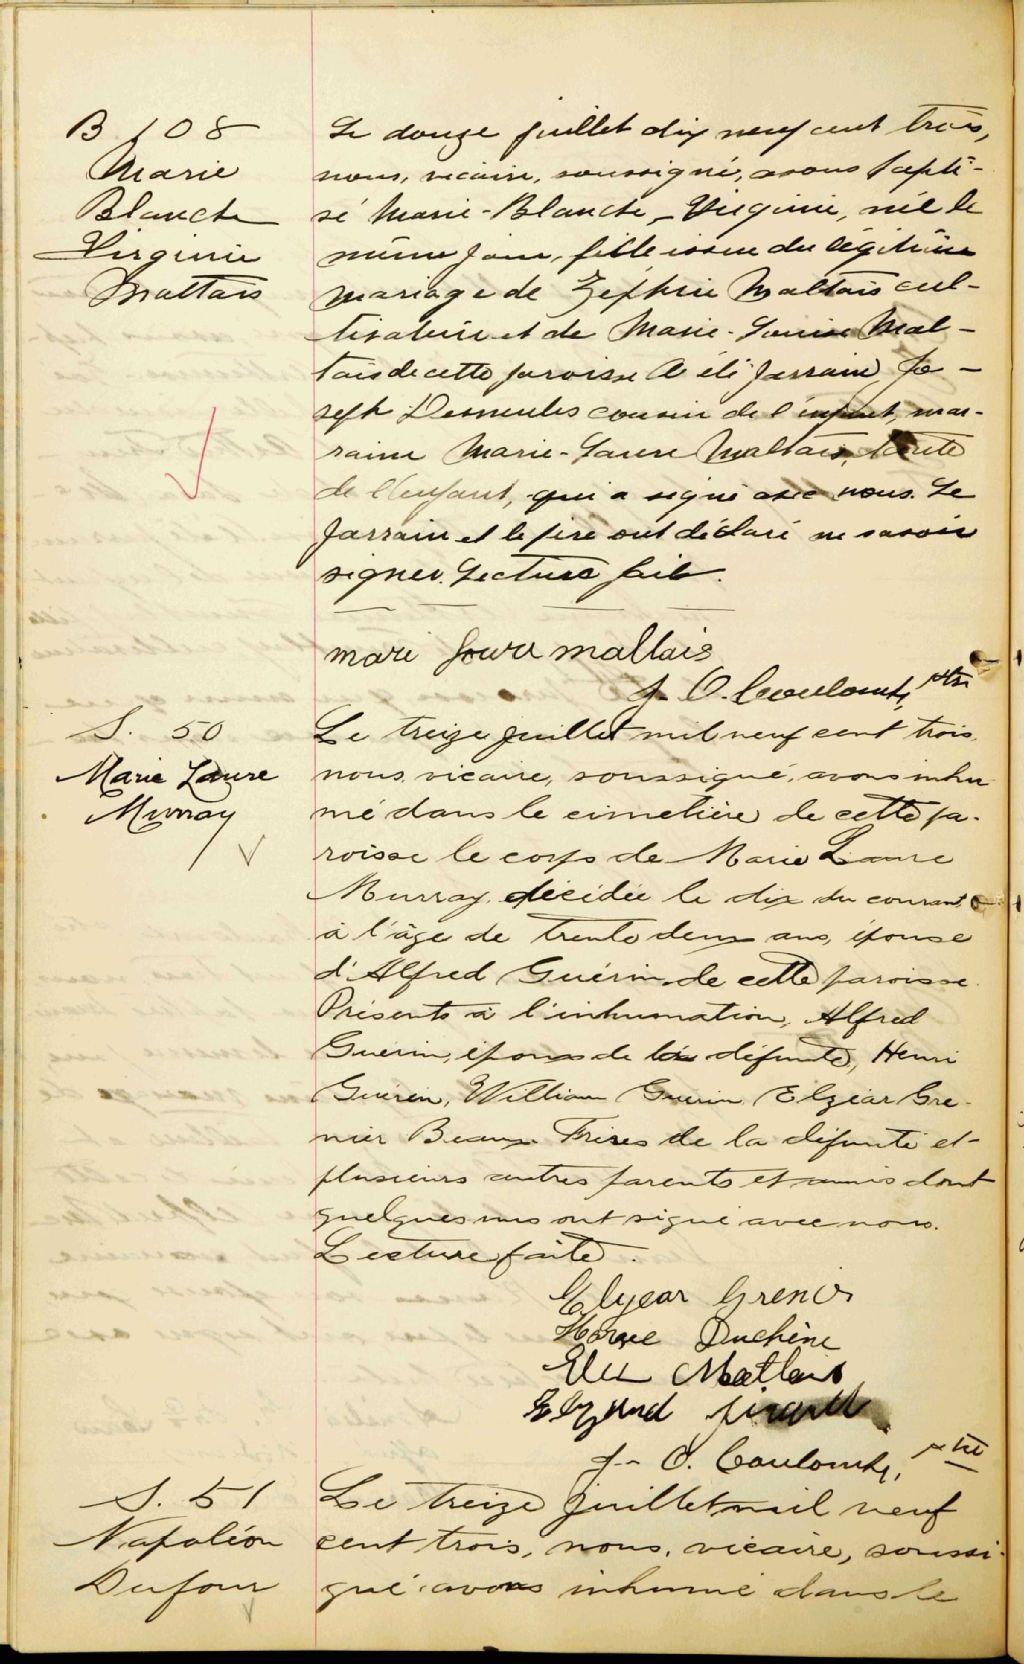 B 108
Marie
Blanche
Virginie
Maltais
Le douze juillet dix neuf cent trois,
nous, vicaire, soussigné, avons bapti-
sé Marie-Blanche, Virginie, née le
même jour, fille issue du légitime
mariage de Zéphrie Maltais cul-
tivateur et de Marie-Louise Mal-
tais de cette paroisse A été parrain Jo-
seph Desmeules cousin de l'enfant, mar-
raine Marie-Laure Maltais, tante
de l'enfant, qui a signé avec nous. Le
parrain et le père ont déclaré ne savoir
signer. Lecture faite.
mari maltais
J. O. Coulombe, ptre
S. 50
Marie Laure
Murray
Le treize juillet mil neuf cent trois,
nous, vicaire, soussigné, avons inhu-
mé dans le cimetière de cette pa-
roisse le corps de Marie Laure
Murray décédée le dix du courant
à l'âge de trente deux ans, épouse
d'Alfred Guérin de cette paroisse.
Présents à l'inhumation, Alfred
Guérin, époux de la défunte, Henri
Guérin, William Guérin Elzéar Gre-
nier Beaux Frères de la défunte et
plusieurs autres parents et amis dont
quelques uns ont signé avec nous.
Lecture faite.
Elyear Grenier
Duchène
Maltais
J. O. Coulombe, ptre
S. 51
Napoléon
Dufour
Le treize juillet mil neuf
cent trois, nous, vicaire, soussi-
gné avons inhumé dans le